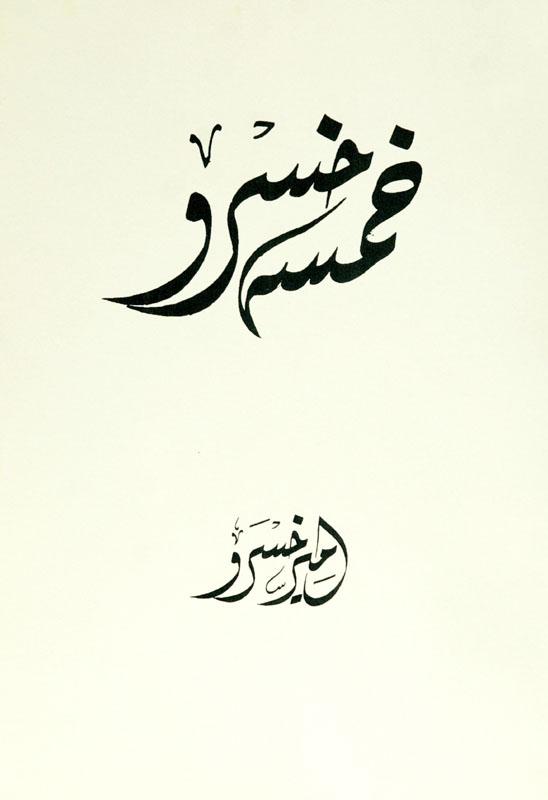 خمسہ خسرو
امیر خسرو